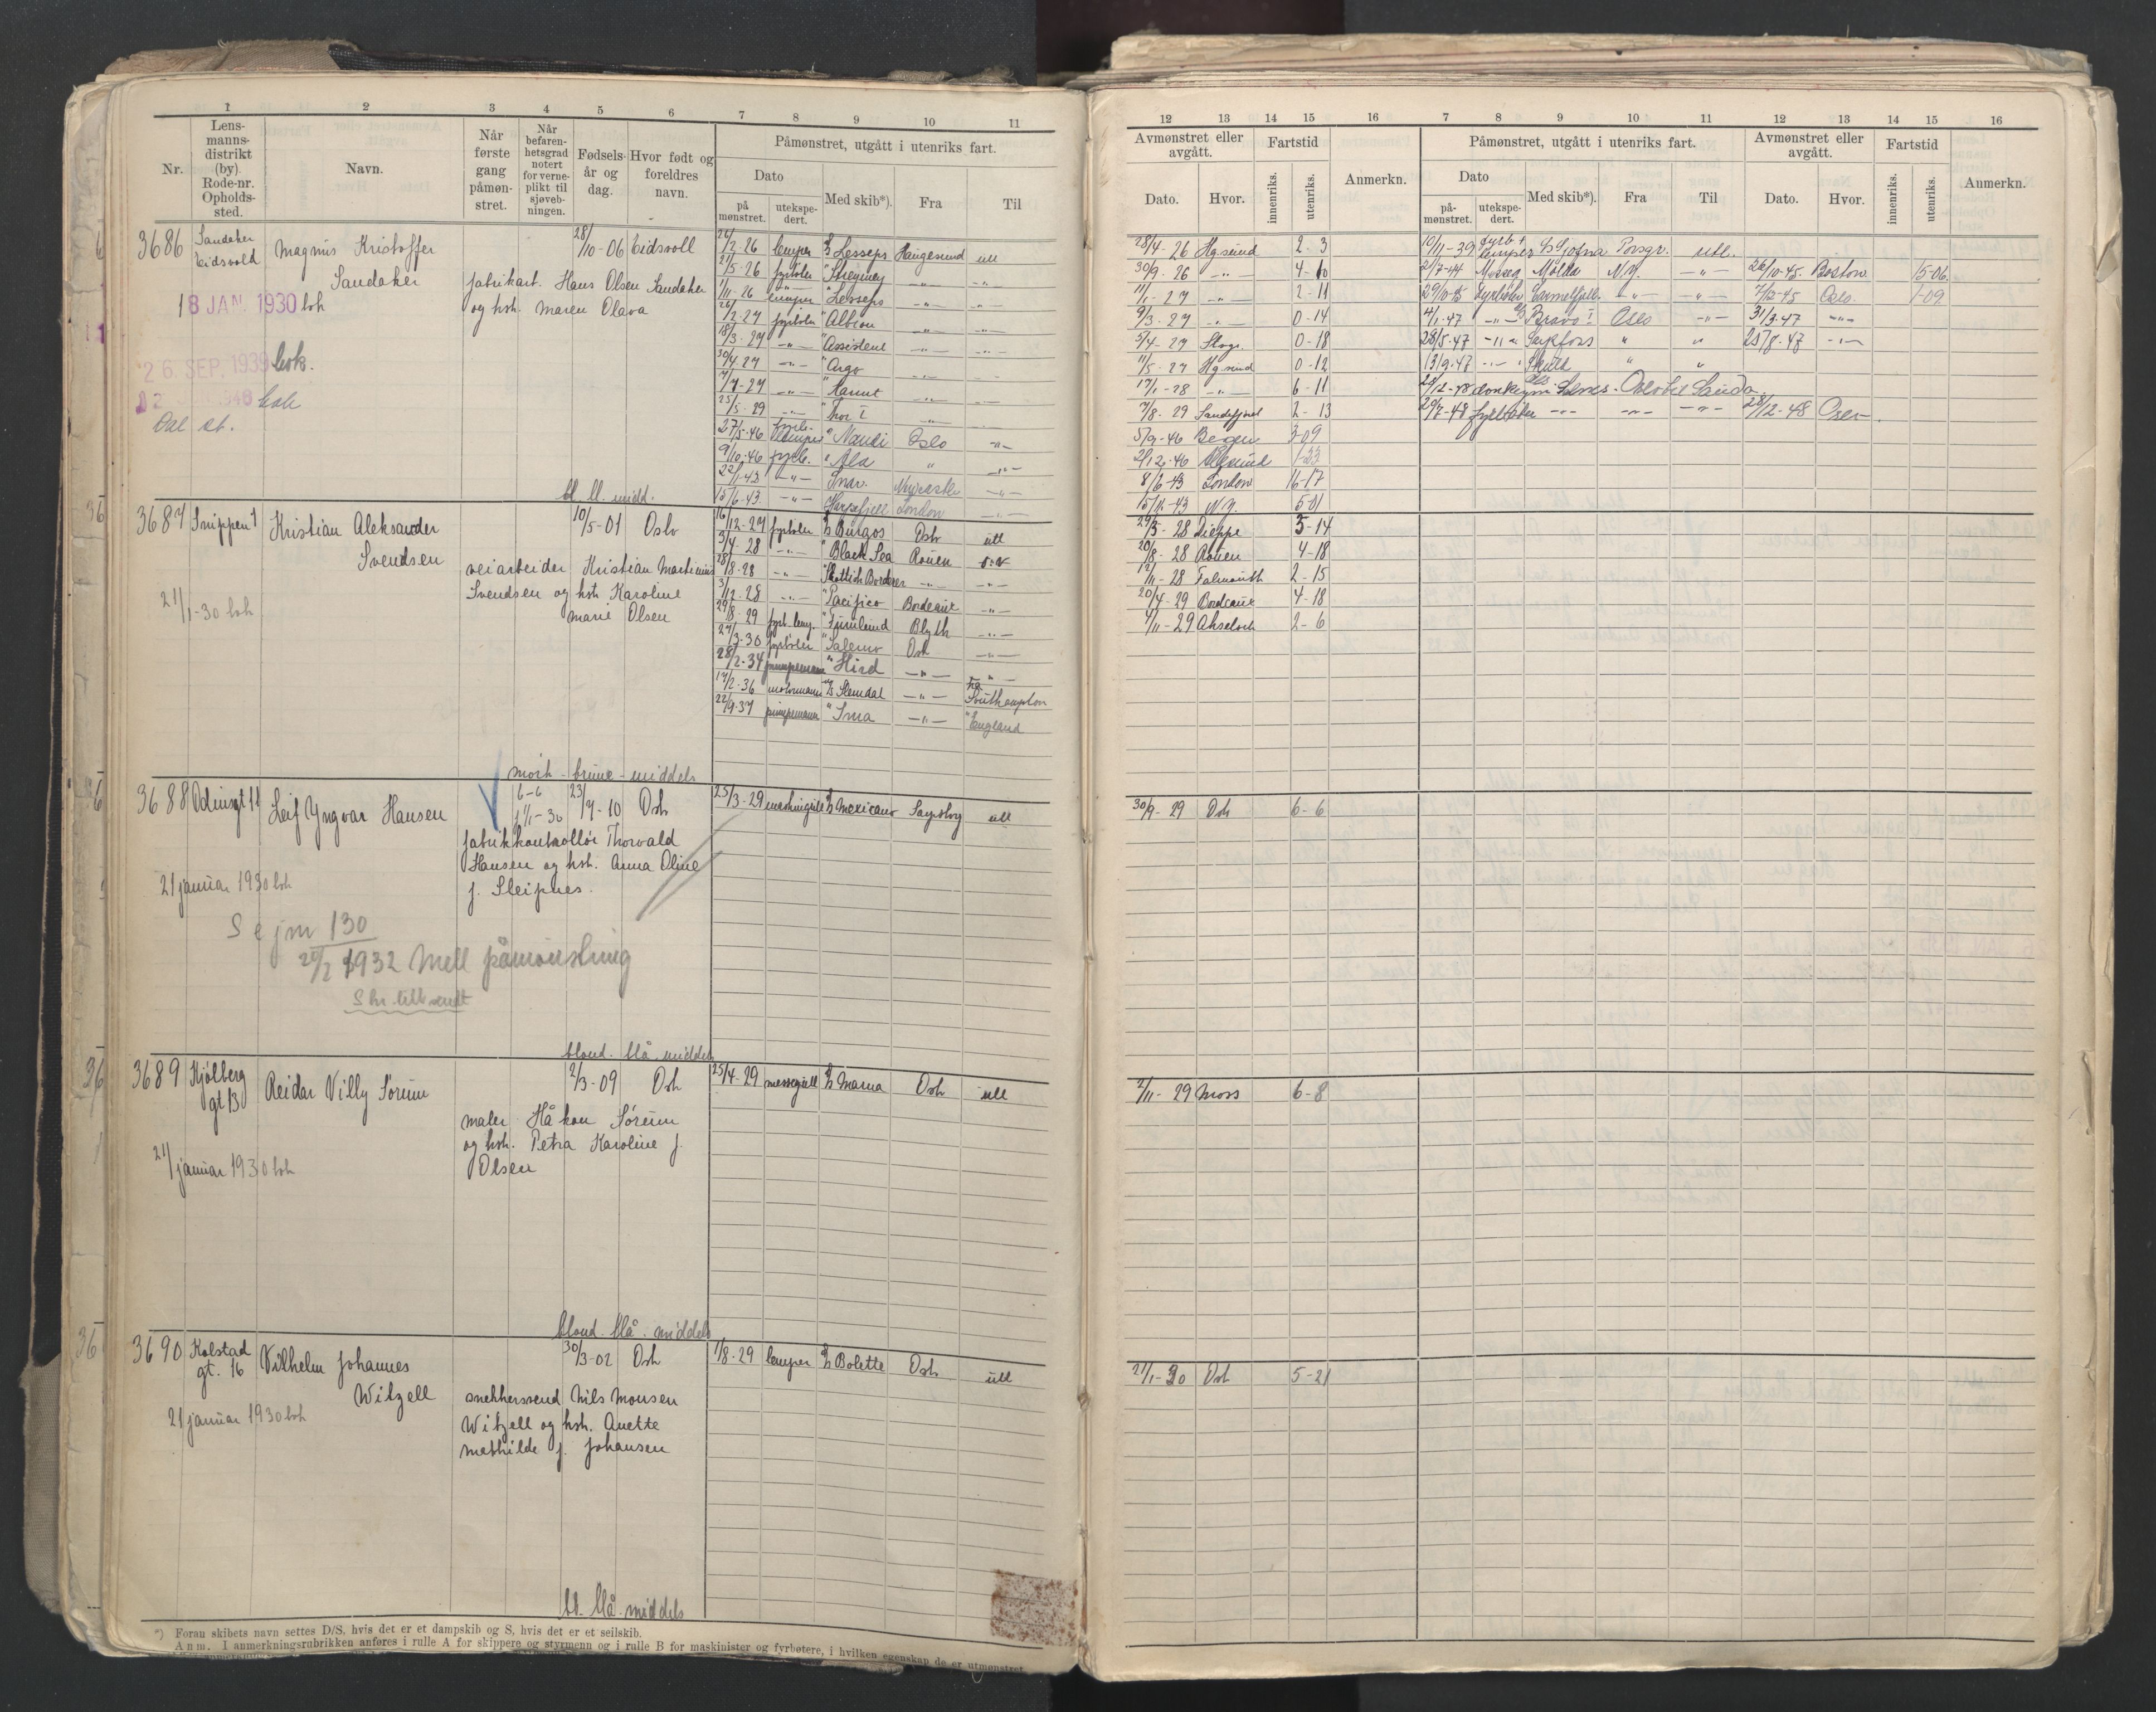 1 2 3 4 5 6 7 8 9 10 11
Nr. Lensmannsdistrikt (by) Rode-nr. Oppholdssted. Navn. Når første gang påmønstret. Når befarenhetsgrad notert for verneplikt til sjøvebningen. Fødselsår og dag. Hvor født og foreldres navn. Påmønstret, utgått i utenriks fart.
Dato
på mønstret. utekspedert. Med skib*). Fra Til
3686 Sandaker Eidsvold Magnus Kristoffer Sandaker 28/10-06 Eidsvoll
fabrikarb. Hans Olsen Sandaker
og hsh. Maren Olava
18 JAN. 1930 boh
26. SEP. 1939 bok.
Dal st.
24/2-26 lemper D/S Lesseps Haugesund utl
21/5-26 fyrböter
1/11-26 lemper " Lesseps -"- -"-
26/2-27 fyrböter " Albion -"- -"-
18/3-27 -"- " Assistent -"- -"-
30/4-27 -"- " Argo -"- -"-
-"- " Havnt
25/5-29 -"- " Thor I
27/5-46 Oslo -"-
9/10-46 fyrb. " Ala " -"-
22/1-43 -"- Snar. Newcastle -"-
15/6-43 -"- Harpefjell London -"-
bl. bl. midd.
3687 Snippen 1 Kristian Aleksander Svendsen 10/5-01 Oslo
veiarbeider Kristian Martinius
Svendsen og hsh Karoline
Marie Olsen
21/1-30 boh
16/12-27 fyrböter D/S Burgos Oslo utl
3/4-28 -"- " Black Sea Rouen
28/8-28 -"- " Skottish Borderer -"- -"-
3/12-28 -"- " Pacifico Bordeaux -"-
29/8-29 fyrb. lemp. Blyth -"-
27/3-30 fyrböter " Salerno Osl -"-
28/2-34 pumpemann " Hird -"- -"-
17/2-36 motormann M/S Slemdal -"- Southampton
22/9-37 pumpemann " Irma -"- " England
mörk - brune - middels
3688 Odinsgt 11 Leif Yngvar Hansen 6-6 23/7-10 Osl
fabrikkontrollör Thorvald
Hansen og hsh. Anna Oline
f. Sleipnes.
21 januar 1930 boh
25/3-29 maskingutt D/S Mexicano Sarpsborg utl
S e jm 130
20/2 1932 Mell påmönstring
Skr. tilbsendt
blond. blå. middels
3689 Kjölberg gt 13 Reidar Villy Sörum 2/3-09 Osl
maler Håkon Sörum
og hsh. Petra Karoline f.
Olsen
21/januar 1930 boh
25/4-29 messegutt D/S Mama Osl utl
blond. blå. middels
3690 Kolstad gt. 16 Vilhelm Johannes Witzell 30/3-02 Osl
snekkersvend Nils Monsen
Witzell og hsh. Anette
Mathilde f. Johansen
21 januar 1930 boh
1/8-29 lemper D/S Bolette Osl utl
bl. blå. middels
*) Foran skibets navn settes D/S, hvis det er et dampskib og S, hvis det er et seilskib.
Anm. I anmerkningsrubrikken anføres i rulle A for skippere og styrmenn og i rulle B for maskinister og fyrbøtere, i hvilken egenskap de er utmønstret
12 13 14 15 16 7 8 9 10 11 12 13 14 15 16
Avmønstret eller avgått. Fartstid Anmerkn. Påmønstret, utgått i utenriks fart. Avmønstret eller avgått. Fartstid Anmerkn.
Dato. Hvor. innenriks. utenriks. Dato på-mønstret. utekspedert. Med skib*). Fra Til Dato. Hvor. innenriks. utenriks.
28/4-26 Hgsund 2-3 10/11-39 D/S Gofna Porsgr. utl.
30/9-26 -"- 4-10 Molda N.Y. -"- 26/10-45 Boston 15-06
11/1-27 -"- 2-11 29/10-45 fyrböter -"- -"- 7/12-45 Oslo 1-09
9/3-27 -"- 0-14 4/1-47 -"- D/S Bravo I Oslo -"- 31/3-47 -"-
5/4-27 0-18 28/5-47 -"- Sarpfoss " " 25/8-47 -"-
11/5-27 Hgsund 0-12 13/9-47 -"- Skuld " "
17/1-28 -"- 6-11
7/8-29 Sandefjord 2-13 29/7-48 -"- -"- -"- 28/12-48 Oslo
5/9-46 Bergen 3-09
8/6-43 London 16-17
15/12-43 N.Y. 5-01
29/3-28 Dieppe 3-14
20/8-28 Rouen 4-18
12/11-28 Falmouth 2-15
20/4-29 Bordeaux 4-18
4/11-29 2-6
30/9-29 Osl 6-6
2/11-29 Moss 6-8
21/1-30 Osl 5-21